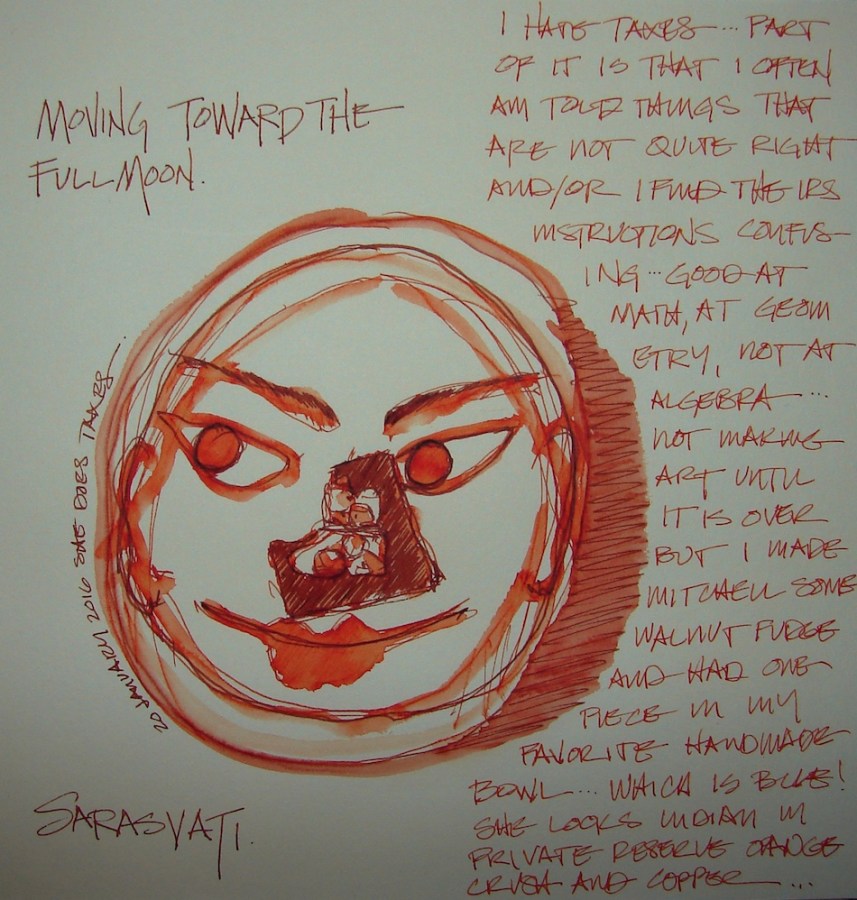 MOVING TOWARD THE
FULL MOON.
I HATE TAXES... PART
OF IT IS THAT I OFTEN
AM TOLD THINGS THAT
ARE NOT QUITE RIGHT
AND/OR I FIND THE IRS
INSTRUCTIONS CONFUS-
ING... GOOD AT
MATH, AT GEOM
ETRY, NOT AT
ALGEBRA...
NOT MAKING
ART UNTIL
IT IS OVER
BUT I MADE
MITCHELL SOME
WALNUT FUDGE
AND HAD ONE
PIECE IN MY
FAVORITE HANDMADE
BOWL... WHICH IS BLUE!
SHE LOOKS INDIAN IN
PRIVATE RESERVE ORANGE
CRUSH AND COPPER...
20 JANUARY 2016 SHE DOES TAXES...
SARASVATI.